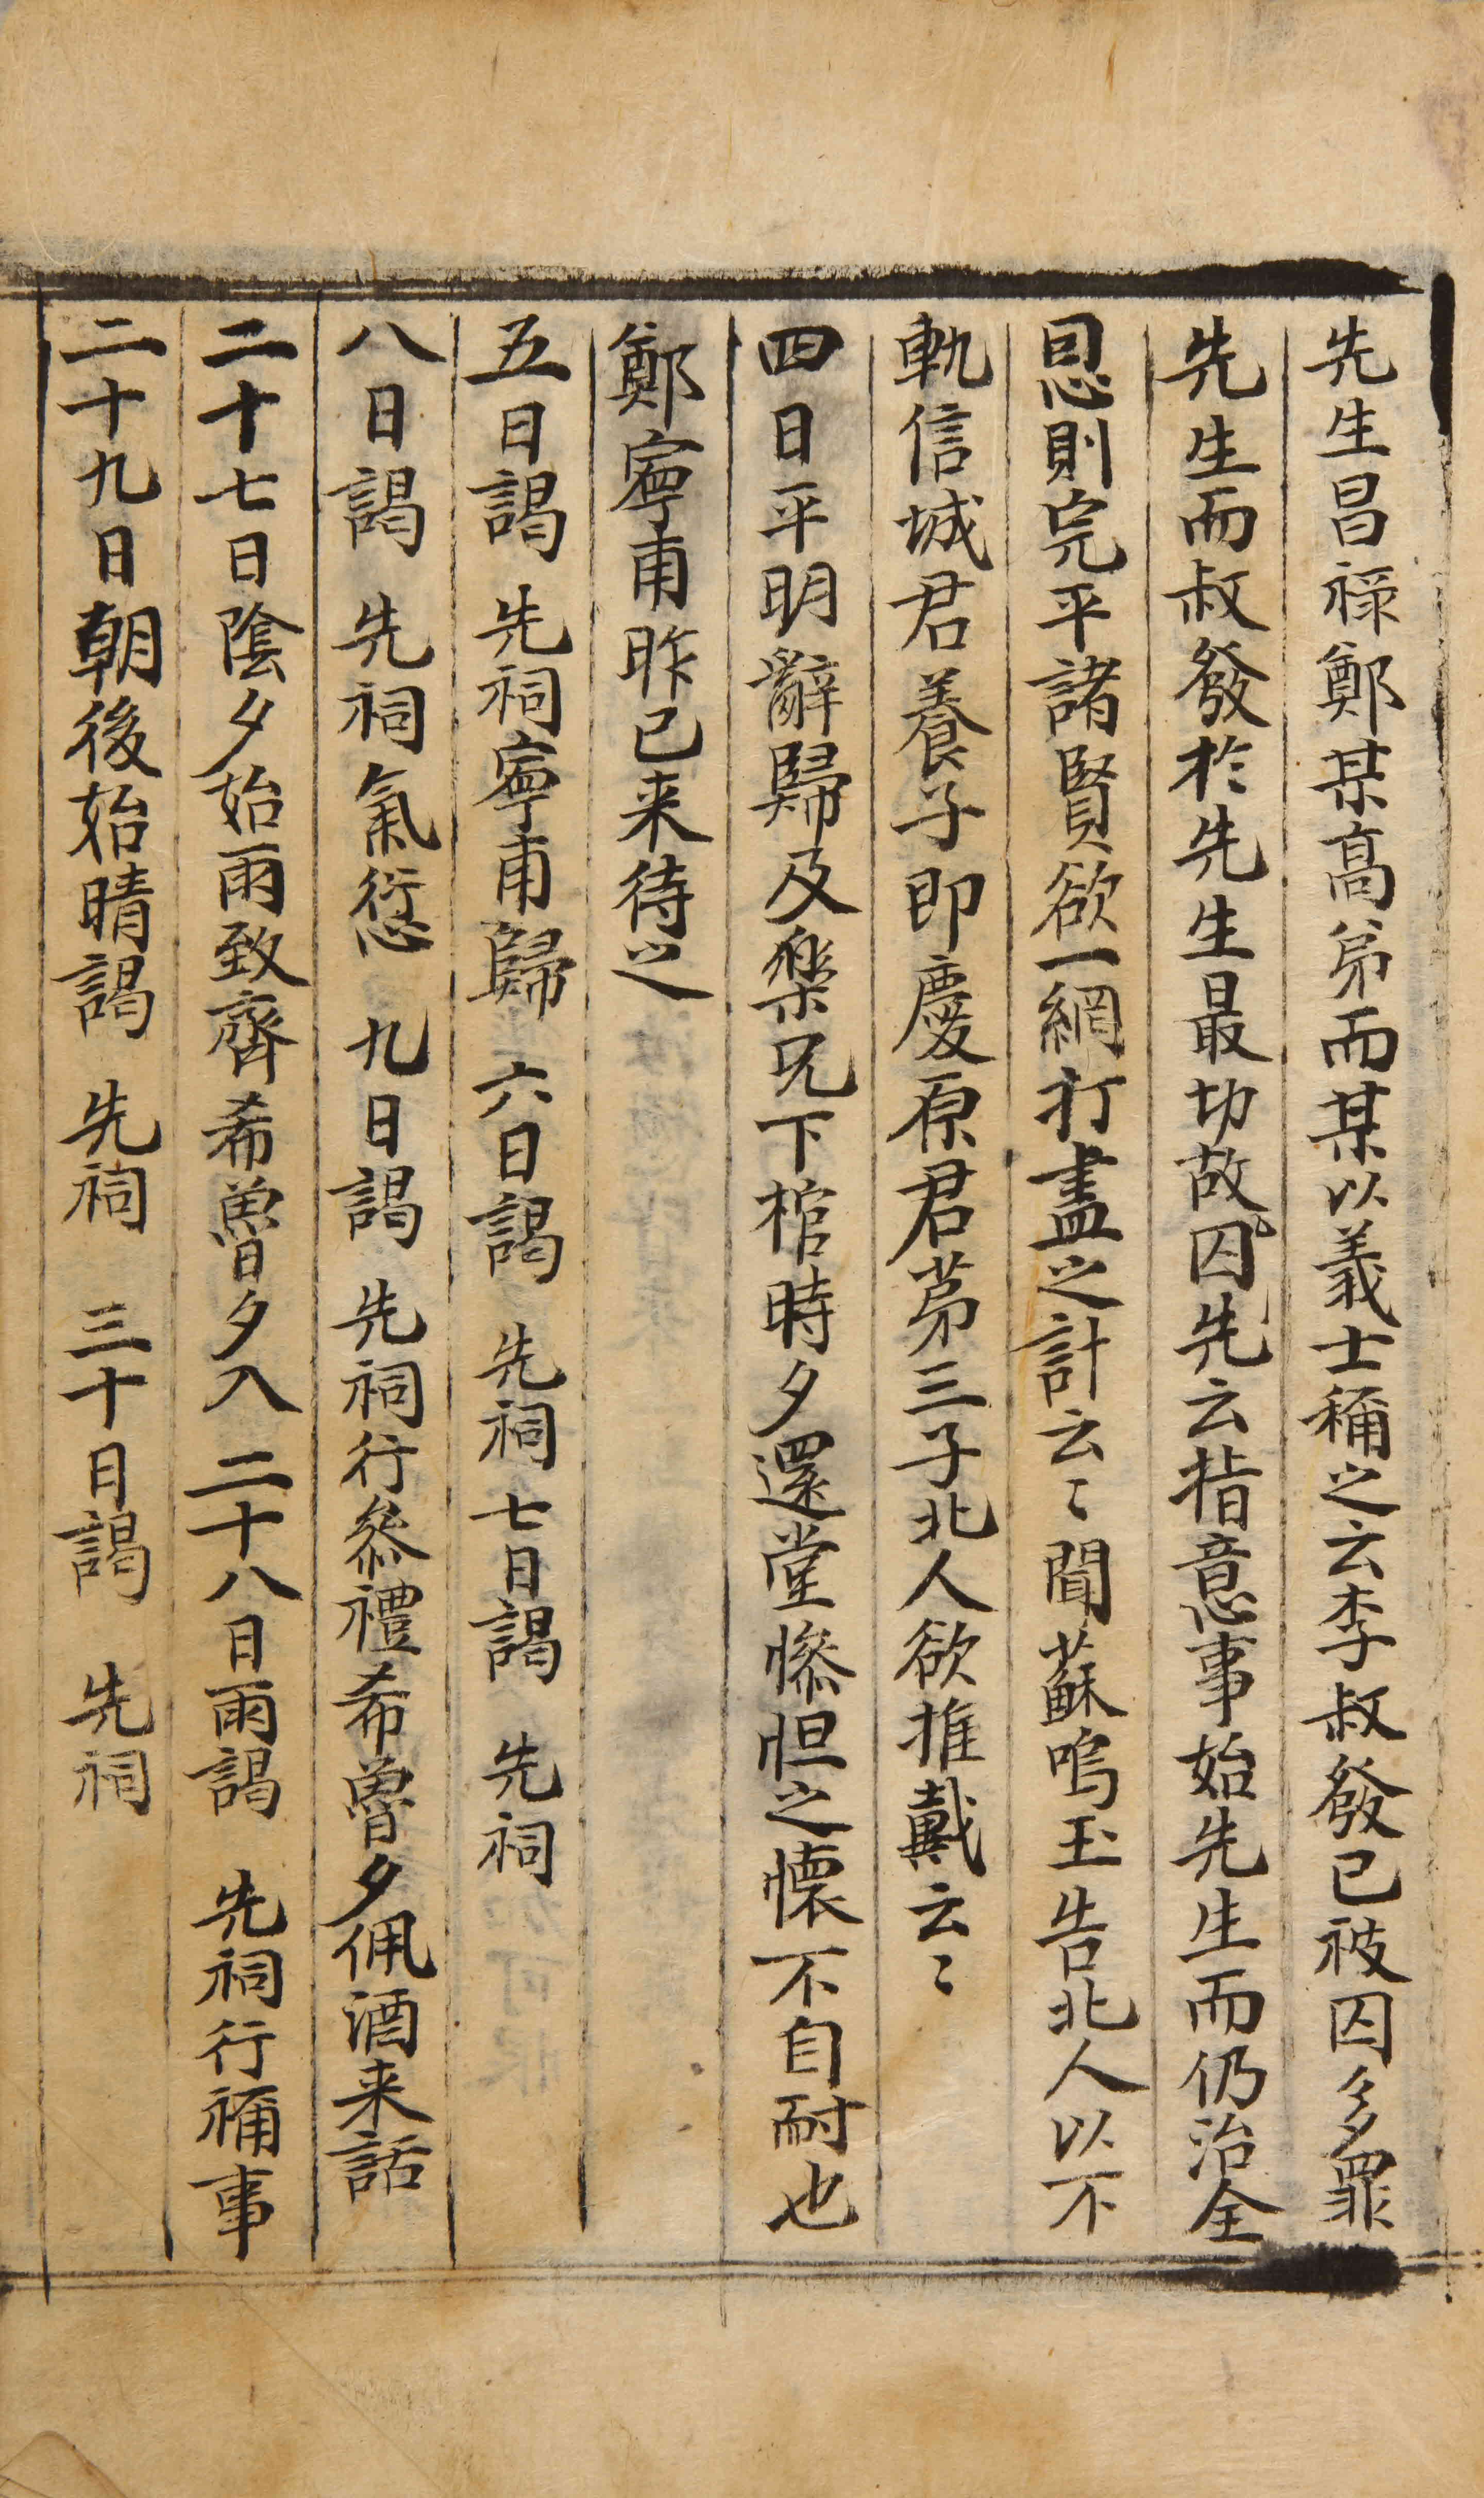 先生昌祿鄭某高弟而某以義士稱之云李叔發已被囚多罪
先生而叔發於先生最切故囚先云指意事始先生而仍治全
恩則完平諸賢欲一網打盡之計云〻聞蘇鳴玉告北人以不
軌信城君養子即慶原君苐三子北人欲推戴云〻
四日平明辭歸及樂兄下棺時夕還堂慘怛之懷不自耐也
鄭寗甫昨已来待之
五日謁 先祠寗甫歸 六日謁 先祠 七日謁 先祠
八日謁 先祠氣愆 九日謁 先祠行叅禮希魯夕佩酒来話
二十七日陰夕始雨致齊希魯夕入 二十八日雨謁 先祠行禰事
二十九日朝後始晴謁 先祠 三十日謁 先祠